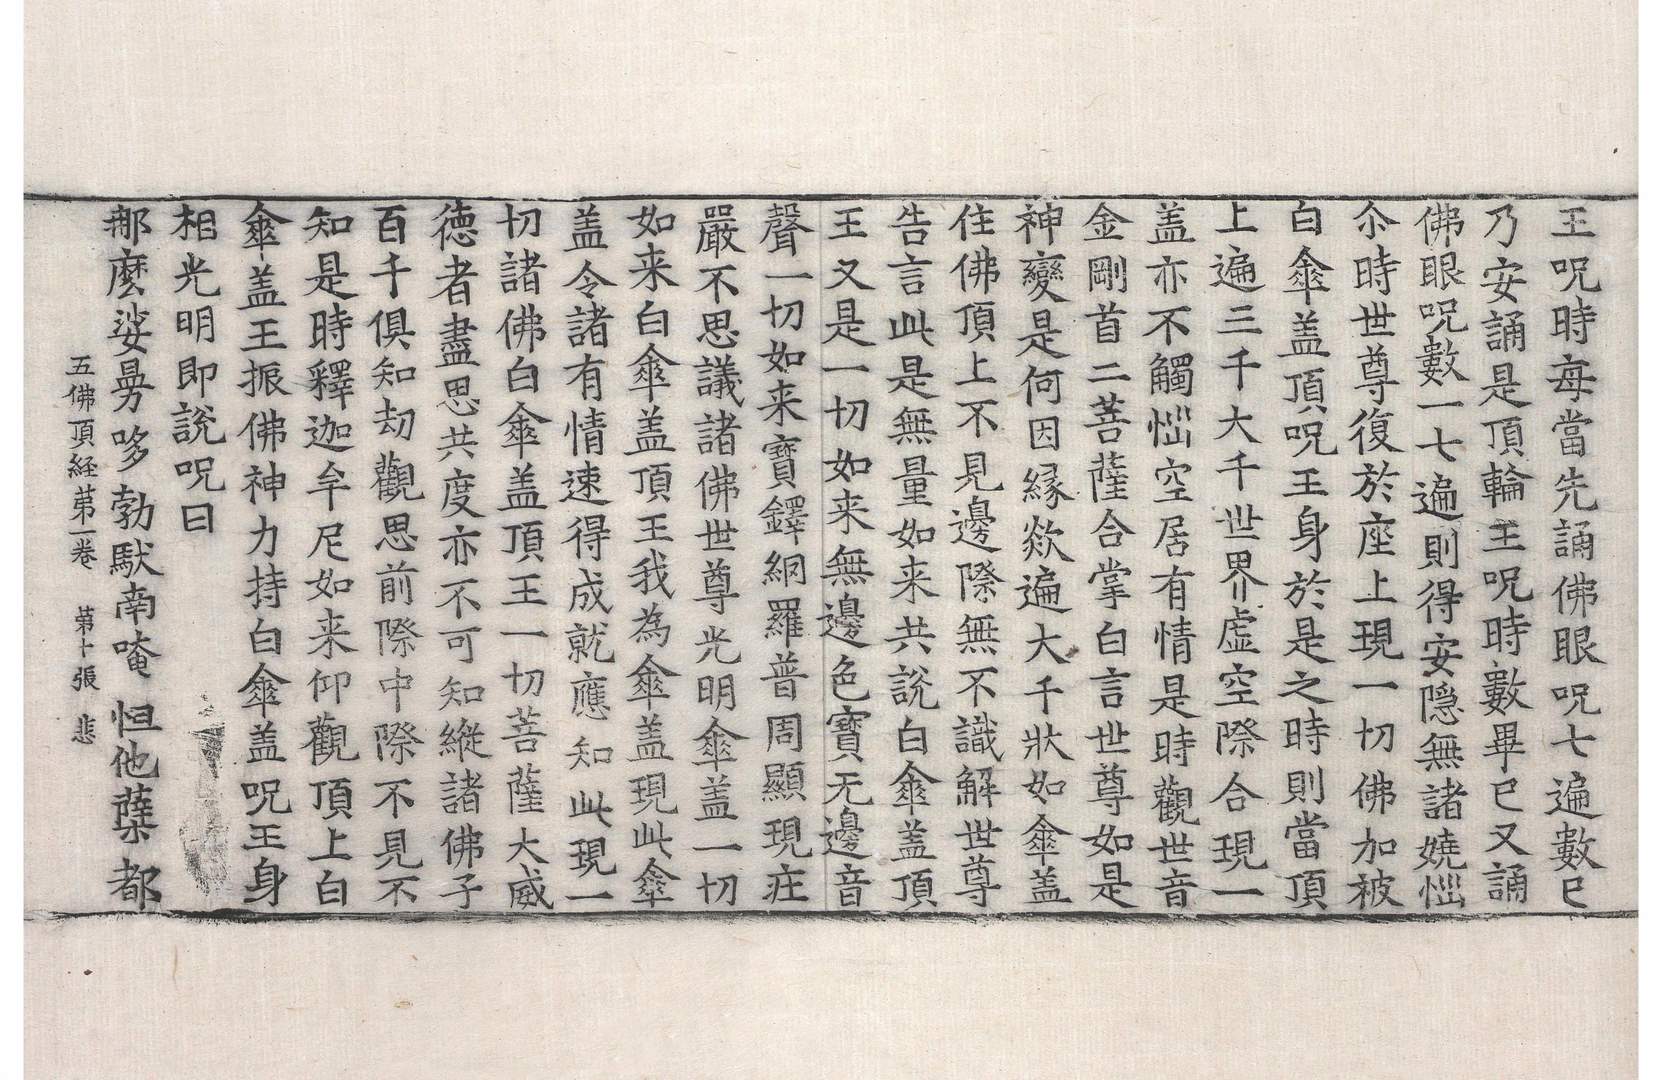 王呪時每當先誦佛眼呪七遍數已
乃安誦是頂輪王呪時數畢已又誦
佛眼呪數一七遍則得安隱無諸嬈惱
尒時世尊復於座上現一切佛加被
白傘盖頂呪王身於是之時則當頂
上遍三千大千世界虛空際合現一
盖亦不觸惱空居有情是時觀世音
金剛首二菩薩合掌白言世尊如是
神變是何因緣欻遍大千狀如傘盖
住佛頂上不見邊際無不識解世尊
告言此是無量如来共說白傘盖頂
王又是一切如来無邊色寶无邊音
聲一切如来寶鐸網羅普周顯現莊
嚴不思議諸佛世尊光明傘盖一切
如来白傘盖頂王我為傘盖現此傘
盖令諸有情速得成就應知此現一
切諸佛白傘盖頂王一切菩薩大威
德者盡思共度亦不可知縱諸佛子
百千俱知劫觀思前際中際不見不
知是時釋迦牟尼如来仰觀頂上白
傘盖王振佛神力持白傘盖呪王身
相光明即說呪曰
那麼娑曼哆勃馱南唵 怛他蘖都
五佛頂経第一卷 第十張 悲